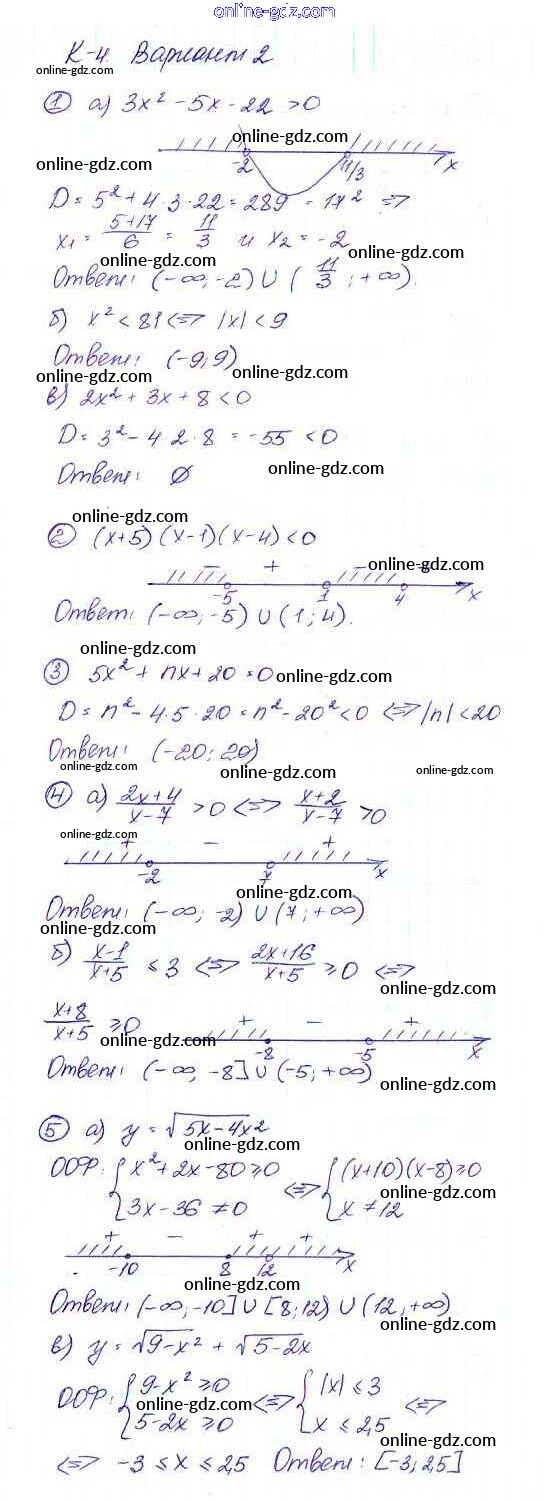 online-gdz.com
К-4. Вариант 2
online-gdz.com
① а) 3x² - 5x - 22 > 0
online-gdz.com
-2 11/3 x
online-gdz.com
D = 5² + 4·3·22 = 289 = 17² ⇒
online-gdz.com
x₁ = (5+17)/6 = 11/3 и x₂ = -2
online-gdz.com
Ответ: (-∞; -2) ∪ (11/3; +∞).
online-gdz.com
б) x² < 81 ⇔ |x| < 9
online-gdz.com
Ответ: (-9; 9)
online-gdz.com
online-gdz.com
в) 2x² + 3x + 8 < 0
online-gdz.com
D = 3² - 4·2·8 = -55 < 0
Ответ: ∅
online-gdz.com
online-gdz.com
② (x+5)(x-1)(x-4) < 0
online-gdz.com
- + -
-5 1 4 x
online-gdz.com
Ответ: (-∞; -5) ∪ (1; 4).
online-gdz.com
③ 5x² + nx + 20 = 0
online-gdz.com
D = n² - 4·5·20 = n² - 20² < 0 ⇔ |n| < 20
online-gdz.com
Ответ: (-20; 20)
online-gdz.com
online-gdz.com
online-gdz.com
④ а) (2x+4)/(x-7) > 0 ⇔ (x+2)/(x-7) > 0
online-gdz.com
+ - +
-2 7 x
online-gdz.com
Ответ: (-∞; -2) ∪ (7; +∞)
online-gdz.com
б) (x-1)/(x+5) ≤ 3 ⇔ (2x+16)/(x+5) ≥ 0 ⇔
online-gdz.com
(x+8)/(x+5) ≥ 0
online-gdz.com
online-gdz.com
+ - +
-8 -5 x
Ответ: (-∞, -8] ∪ (-5; +∞)
online-gdz.com
⑤ а) y = √5x-4x2
online-gdz.com
ООФ: { x² + 2x - 80 ≥ 0 ⇔ { (x+10)(x-8) ≥ 0
3x - 36 ≠ 0 x ≠ 12
online-gdz.com
online-gdz.com
+ - + +
-10 8 12 x
online-gdz.com
Ответ: (-∞; -10] ∪ [8; 12) ∪ (12; +∞)
online-gdz.com
в) y = √9-x² + √5-2x
online-gdz.com
ООФ: { 9-x² ≥ 0 ⇔ { |x| ≤ 3 ⇔
5-2x ≥ 0 x ≤ 2,5
online-gdz.com
online-gdz.com
⇔ -3 ≤ x ≤ 2,5 Ответ: [-3; 2,5]
online-gdz.com